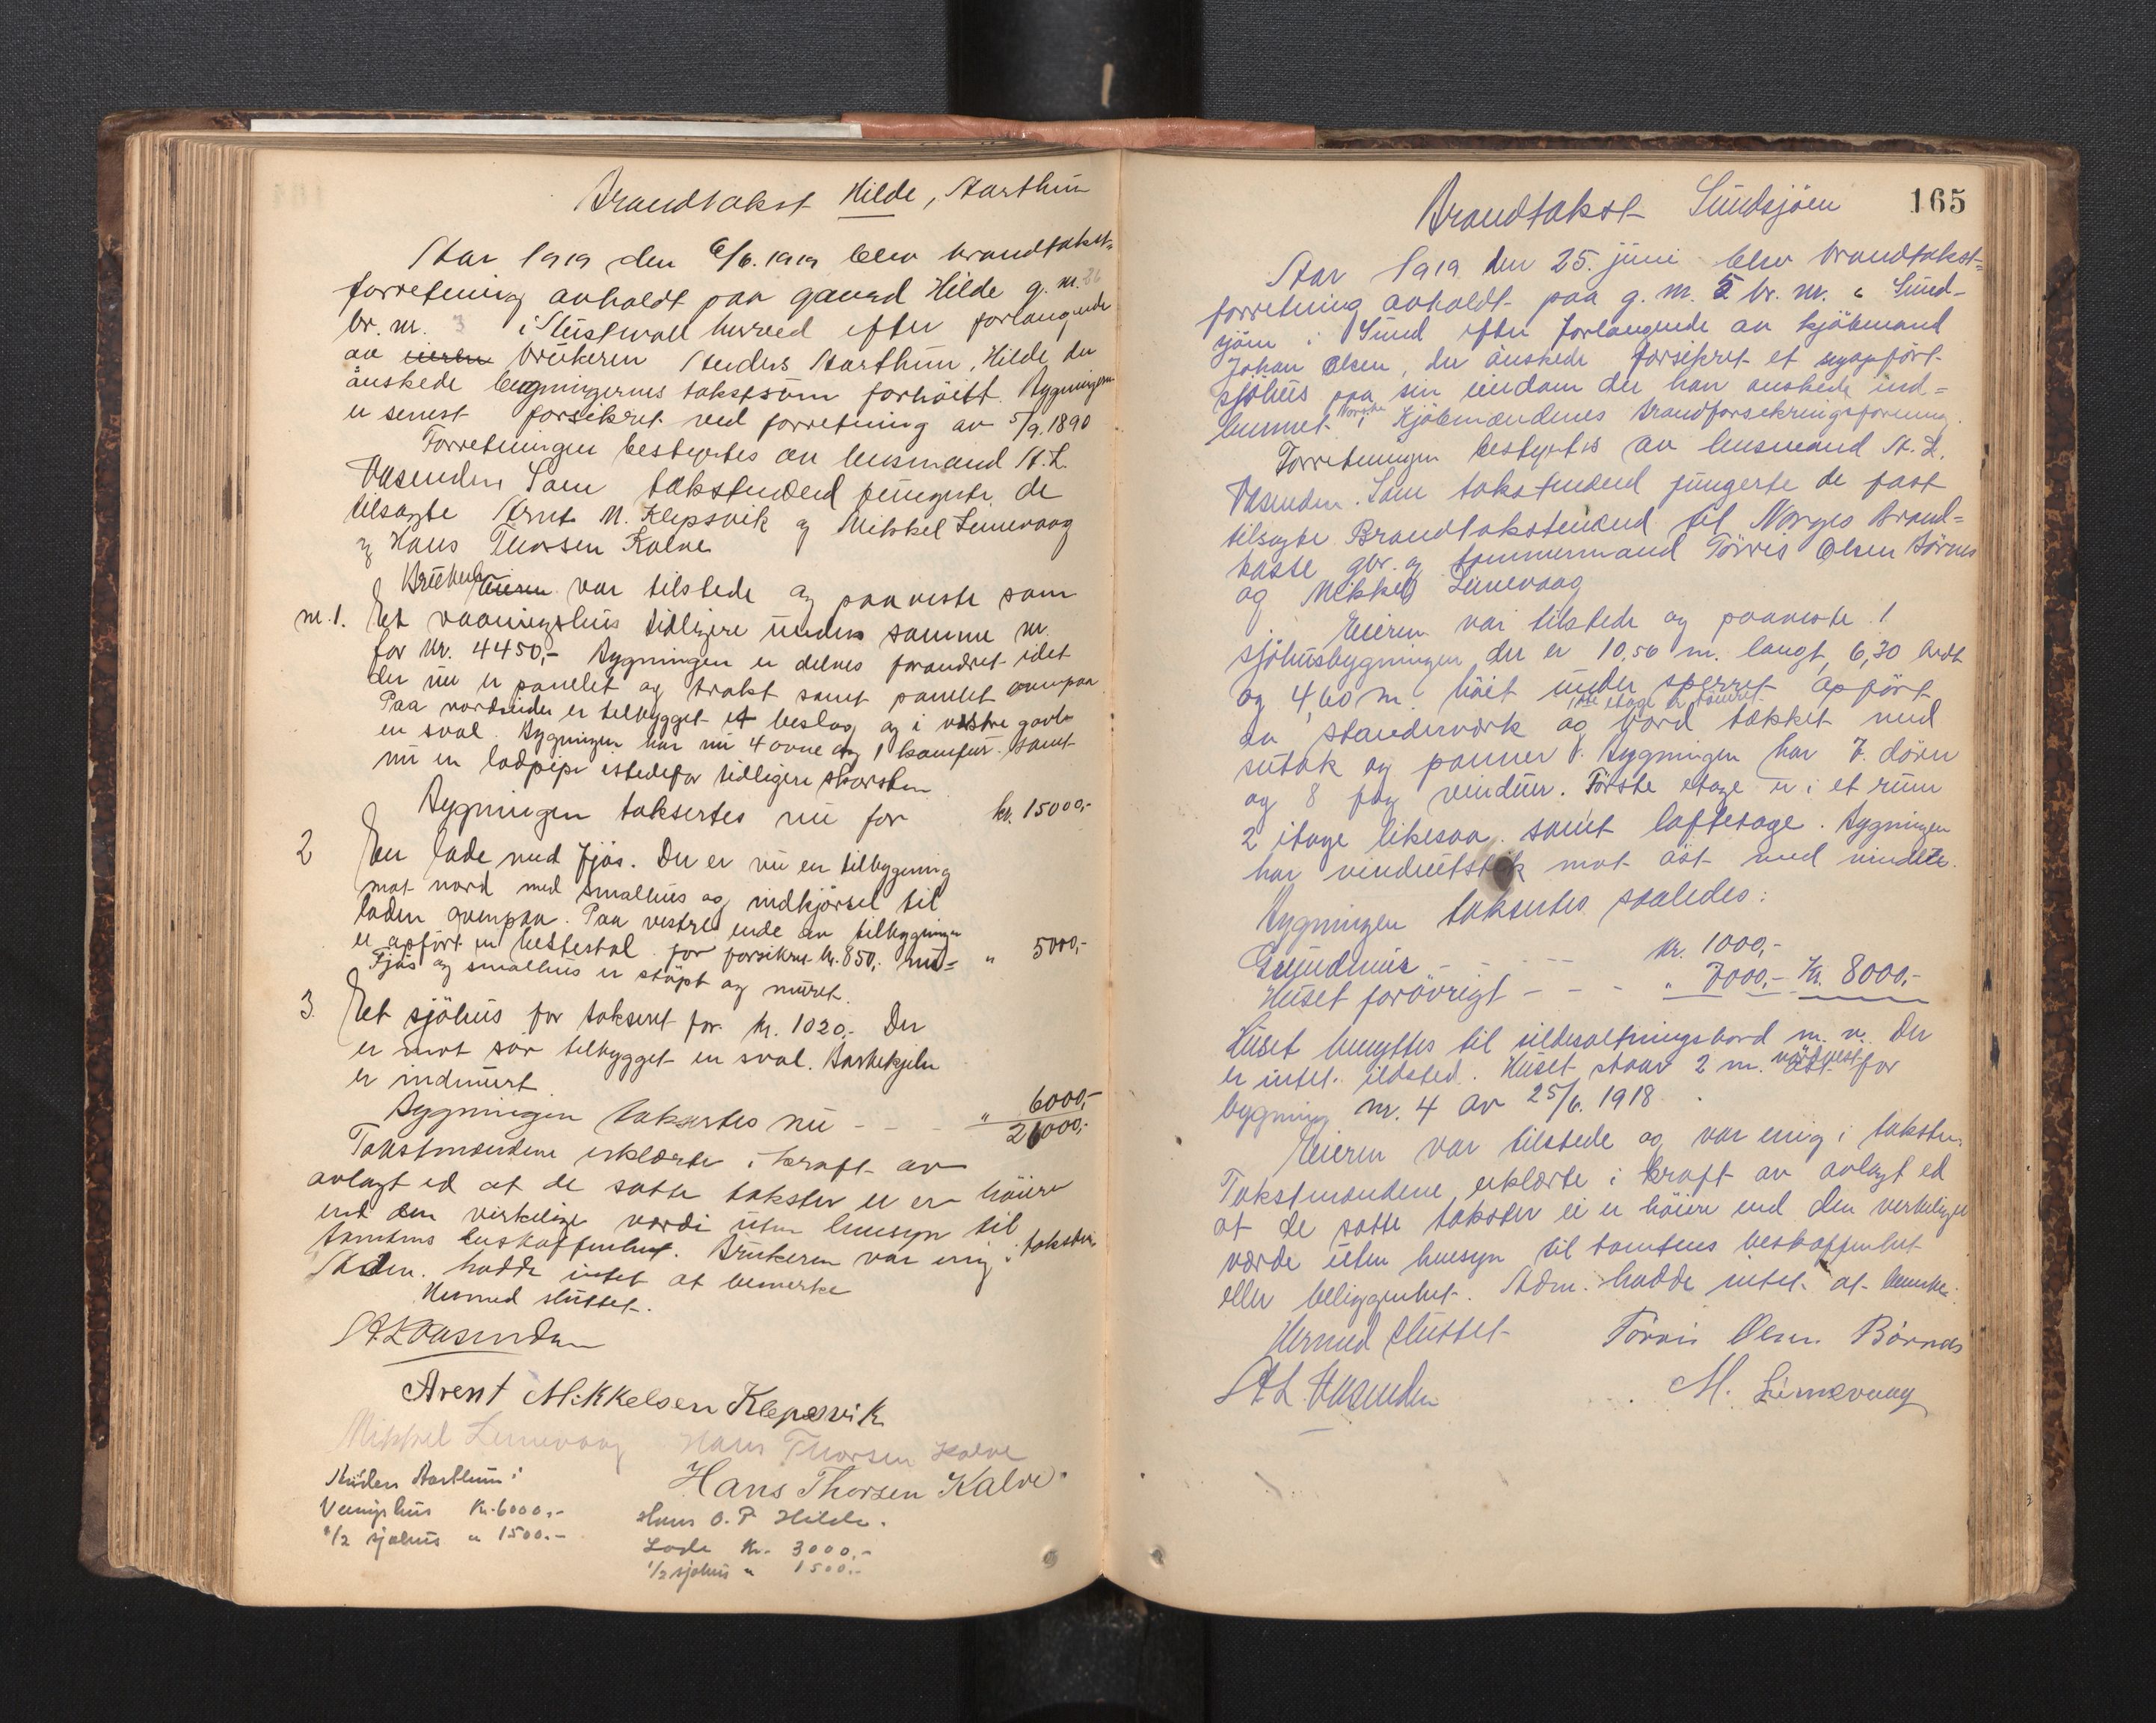 Brandtakst Hilde, Aarthun
Aar 1919 den 6/6. 1919 blev brandtakst-
forretning avholdt paa gaard Hilde g. nr. 26
br. nr. 3 i Austevoll herred efter forlangende
av eieren brukeren Anders Aarthun, Hilde, der
önskede bygningernes takstsum forhöiet. Bygningerne
er senest forsikret ved forretning av 5/9. 1890
Forretningen bestyrtes av lensmand A. L.
Vasenden Som takstmænd fungerte de
tilsagte Arnt M. Klepsvik og Mikkel Linnevaag
og Hans Thorsen Kalve
Brukeren Eieren var tilstede og paaviste som
nr. 1. Et vaaningshus tidligere under samme nr.
for kr. 4450,- Bygningen er delvis forandret idet
der nu er panelet og trakt samt panelet ovenpaa
Paa nordsiden er tilbygget et beslag og i vestre gavl
en sval. Bygningen har nu 4 ovne og 1 komfur. samt
nu en lodpipe istedefor tidligere skorsten
Bygningen taksertes nu for kr. 15000,-
2 En lade med fjös. Der er nu en tilbygning
mot nord med smalhus og indkjörsel til
laden ovenpaa. Paa vestre ende av tilbygningen
er opfört en hestestal for forsikret kr. 850,- nu = " 5000,-
Fjös og smalhus er stöpt og muret.
3. Et sjöhus for takseret for kr. 1020,- Der
er mot sör tilbygget en sval. Barkekjelen
er indmurt
Bygningen taksertes nu - - - " 6000,-
26000,-
Takstmændene erklærte i kraft av
avlagt ed at de satte takster ei er höiere
end den virkelige værdi uten hensyn til
tomtens beskaffenhet. Brukeren var enig i taksten
Adm. hadde intet at bemerke
Hermed sluttet.
A L Vasenden
Arent Mikkelsen Klepsvik
Mikkel Linnevaag Hans Thorsen Kalve
Hans Thorsen Kalve
Anders Aarthun:
Vaaningshus Kr. 6000,-
1/2 sjøhus " 1500,-
Hans O. P Hilde.
Lade Kr. 3000,-
1/2 sjøhus " 1500,-
165
Brandtakst Sundsjöen
Aar 1919 den 25. juni blev brandtakst-
forretning avholdt paa g. nr. 5 br. nr. 6 Sund-
sjöen i Sund efter forlangende av kjöbmand
Johan Olsen, der önskede forsikret et nyopfört
sjöhus paa sin eiendom der han önskede ind-
lemmet i Norske Kjöbmændenes Brandforsikringsforening
Forretningen bestyrtes av lensmand A. L.
Vasenden. Som takstmænd fungerte de fast
tilsagte Brandtakstmænd til Norges Brand-
kasse gbr. og tömmermand Törris Olsen Börnes
og Mikkel Linnevaag
Eieren var tilstede og paaviste 1
sjöhusbygningen der er 10,56 m. langt, 6,30 bredt
og 4,60 m. höit under sperret opfört
av standerverk og bord tækket med
1ste etage er tömret
sutak og panner. Bygningen har 7. dörer
og 8 fag vinduer. Förste etage er i et rum
2 etage likesaa, samt loftetage. Bygningen
har vindeutstik mot öst med vindue.
Bygningen taksertes saaledes:
Grundmur - - - - kr. 1000,-
Huset forövrigt - - - " 7000,- Kr. 8000,-
Huset benyttes til sildesaltningsbord m. v. Der
er intet ildsted. Huset staar 2 m. öst nordvest for
bygning nr. 4 av 25/6. 1918
Eieren var tilstede og var enig i taksten.
Takstmændene erklærte i kraft av avlagt ed
at de satte takster ei er höiere end den verkelige
værde uten hensyn til tomtens beskaffenhet
eller beliggenhet. Adm. hadde intet at bemerke.
Hermed sluttet
A L Vasenden
Törris Olsen Börnes
M. Linnevaag